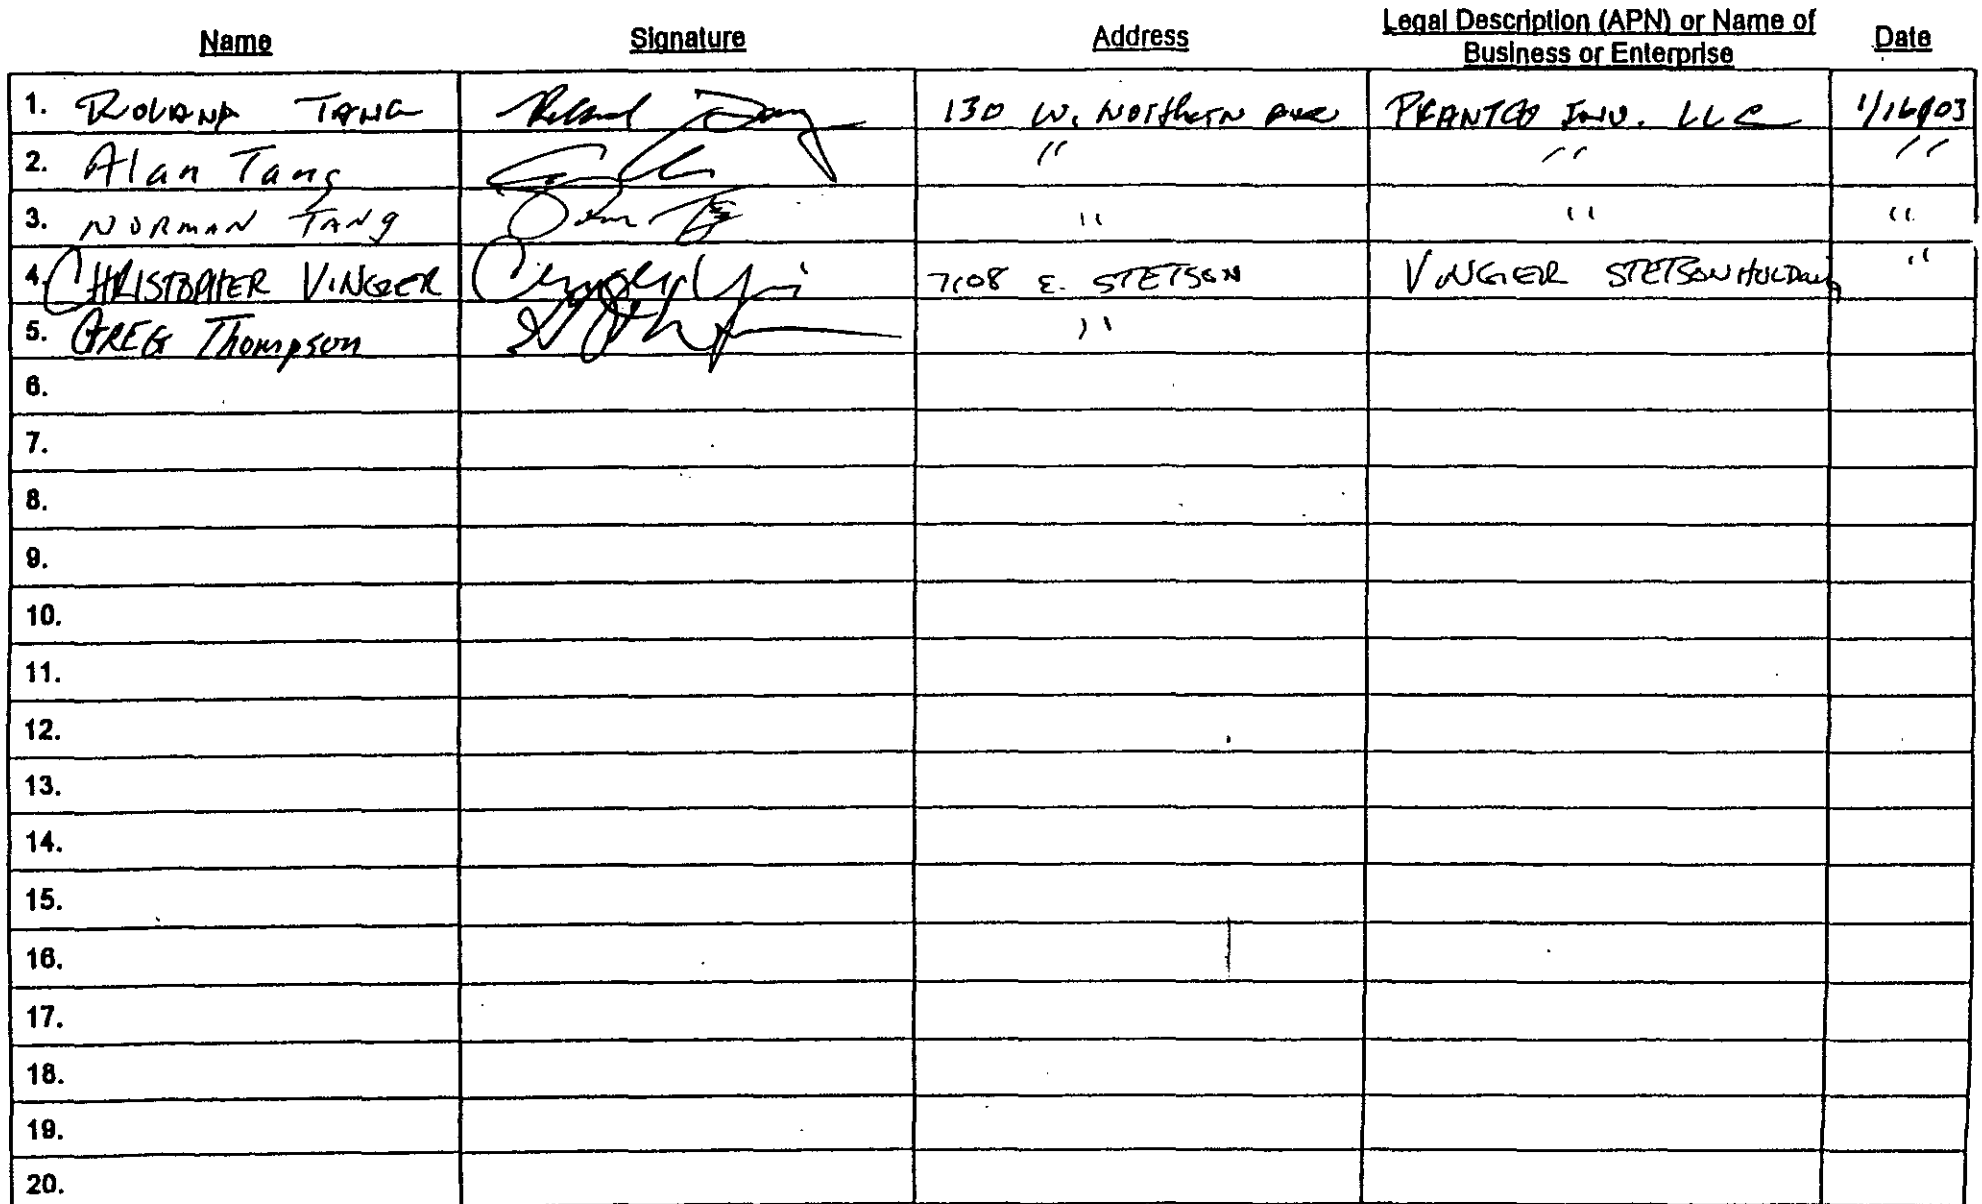 Name Signature Address Legal Description (APN) or Name of Business or Enterprise Date
1. ROLAND TANG 130 W. NORTHERN AVE INV. LLC 1/16/03
2. Alan Tang " " "
3. NORMAN TANG " " "
4. CHRISTOPHER VINGIER 7108 E. STETSON VINGIER STETSON HOLDING "
5. GREG Thompson "
6.
7.
8.
9.
10.
11.
12.
13.
14.
15.
16.
17.
18.
19.
20.